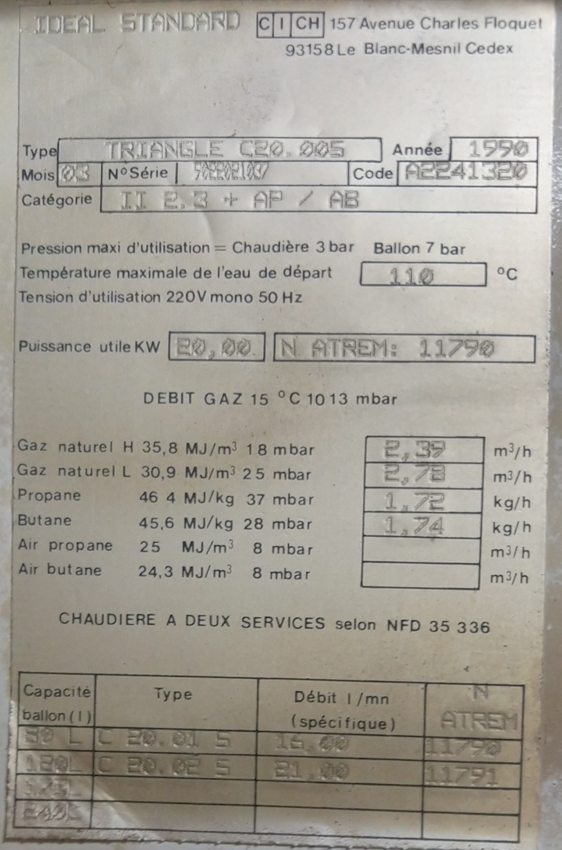 IDEAL STANDARD CICH 157 Avenue Charles Floquet
93158 Le Blanc-Mesnil Cedex
Type TRIANGLE C20.005 Année 1990
Mois 03 N° Série Code A2241320
Catégorie II 2.3 + AP / AB
Pression maxi d'utilisation = Chaudière 3 bar Ballon 7 bar
Température maximale de l'eau de départ 110 °C
Tension d'utilisation 220V mono 50 Hz
Puissance utile KW 20,00 N ATREM: 11790
DEBIT GAZ 15 °C 1013 mbar
Gaz naturel H 35,8 MJ/m³ 18 mbar 2,39 m³/h
Gaz naturel L 30,9 MJ/m³ 25 mbar 2,78 m³/h
Propane 46 4 MJ/kg 37 mbar 1,72 kg/h
Butane 45,6 MJ/kg 28 mbar 1,74 kg/h
Air propane 25 MJ/m³ 8 mbar m³/h
Air butane 24,3 MJ/m³ 8 mbar m³/h
CHAUDIERE A DEUX SERVICES selon NFD 35 336
Capacité ballon (l) Type Débit l/mn (spécifique) N ATREM
80 L C 20.01 S 16,00 11790
120L C 20.02 S 21,00 11791
175L
240L